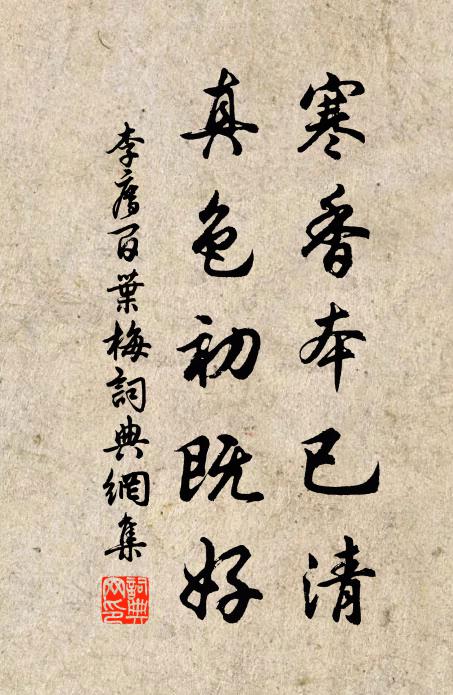 寒香本已清
真色初既好
李廌百葉梅詞典網集
詞典網印